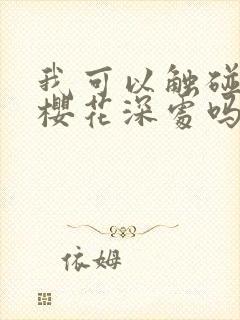 我可以触碰
樱花深处吗
依姆